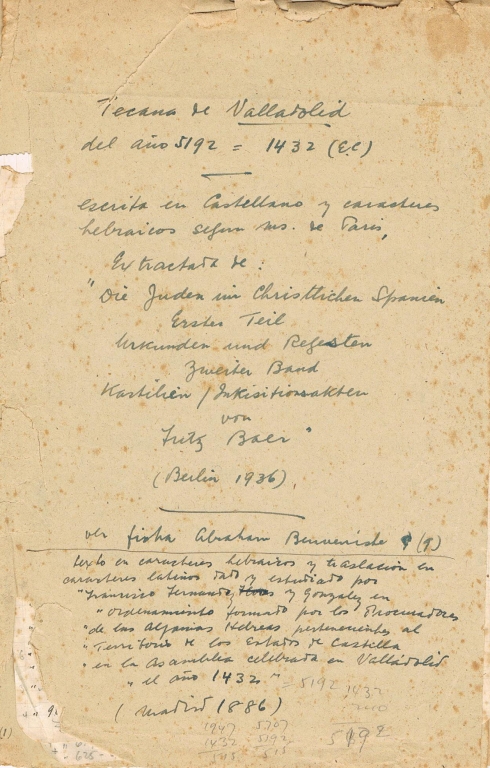 Tecana de Valladolid
del año 5192 = 1432 (E.C)
escrita en Castellano y caracteres
hebraicos segun ms. de Paris,
Extractada de:
"Die Juden im Christlichen Spanien
Erstes Teil
Urkunden und Regesten
Zweiter Band
Kastilien / Inkisitionsakten
von
Fritz Baer"
(Berlin 1936).
ver ficha Abraham Benveniste (9)
texto en caracteres hebraicos y traslación en
caracteres latinos dado y estudiado por
"Francisco Fernandez y Gonzalez en
"ordenamiento formado por los Procuradores
"de las Aljamas Hebreas pertenecientes al
"Territorio de los Estados de Castilla
"en la Asamblea celebrada en Valladolid
"el año 1432." = 5192 1432
(Madrid 1886) 5192
1947 5707
1432 5192
515 515